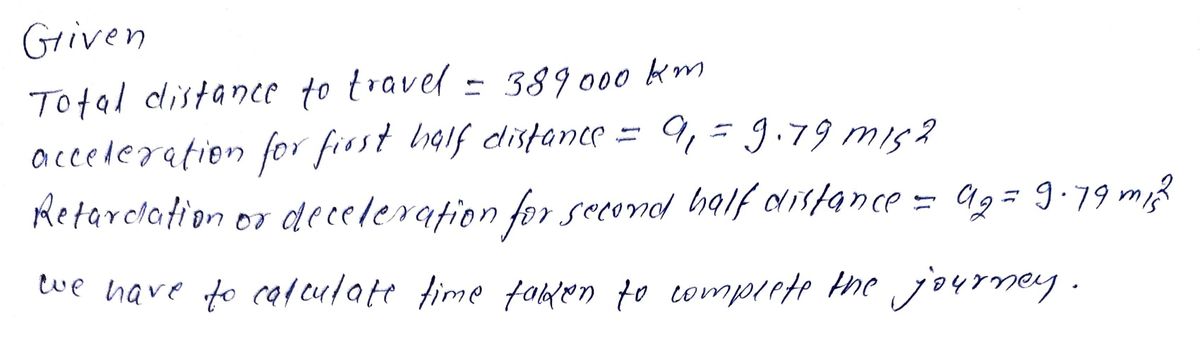 Given
Total distance to travel = 389000 km
acceleration for first half distance = a₁ = 9.79 m/s2
Retardation or deceleration for second half distance = a₂ = 9.79 m/s²
we have to calculate time taken to complete the journey.